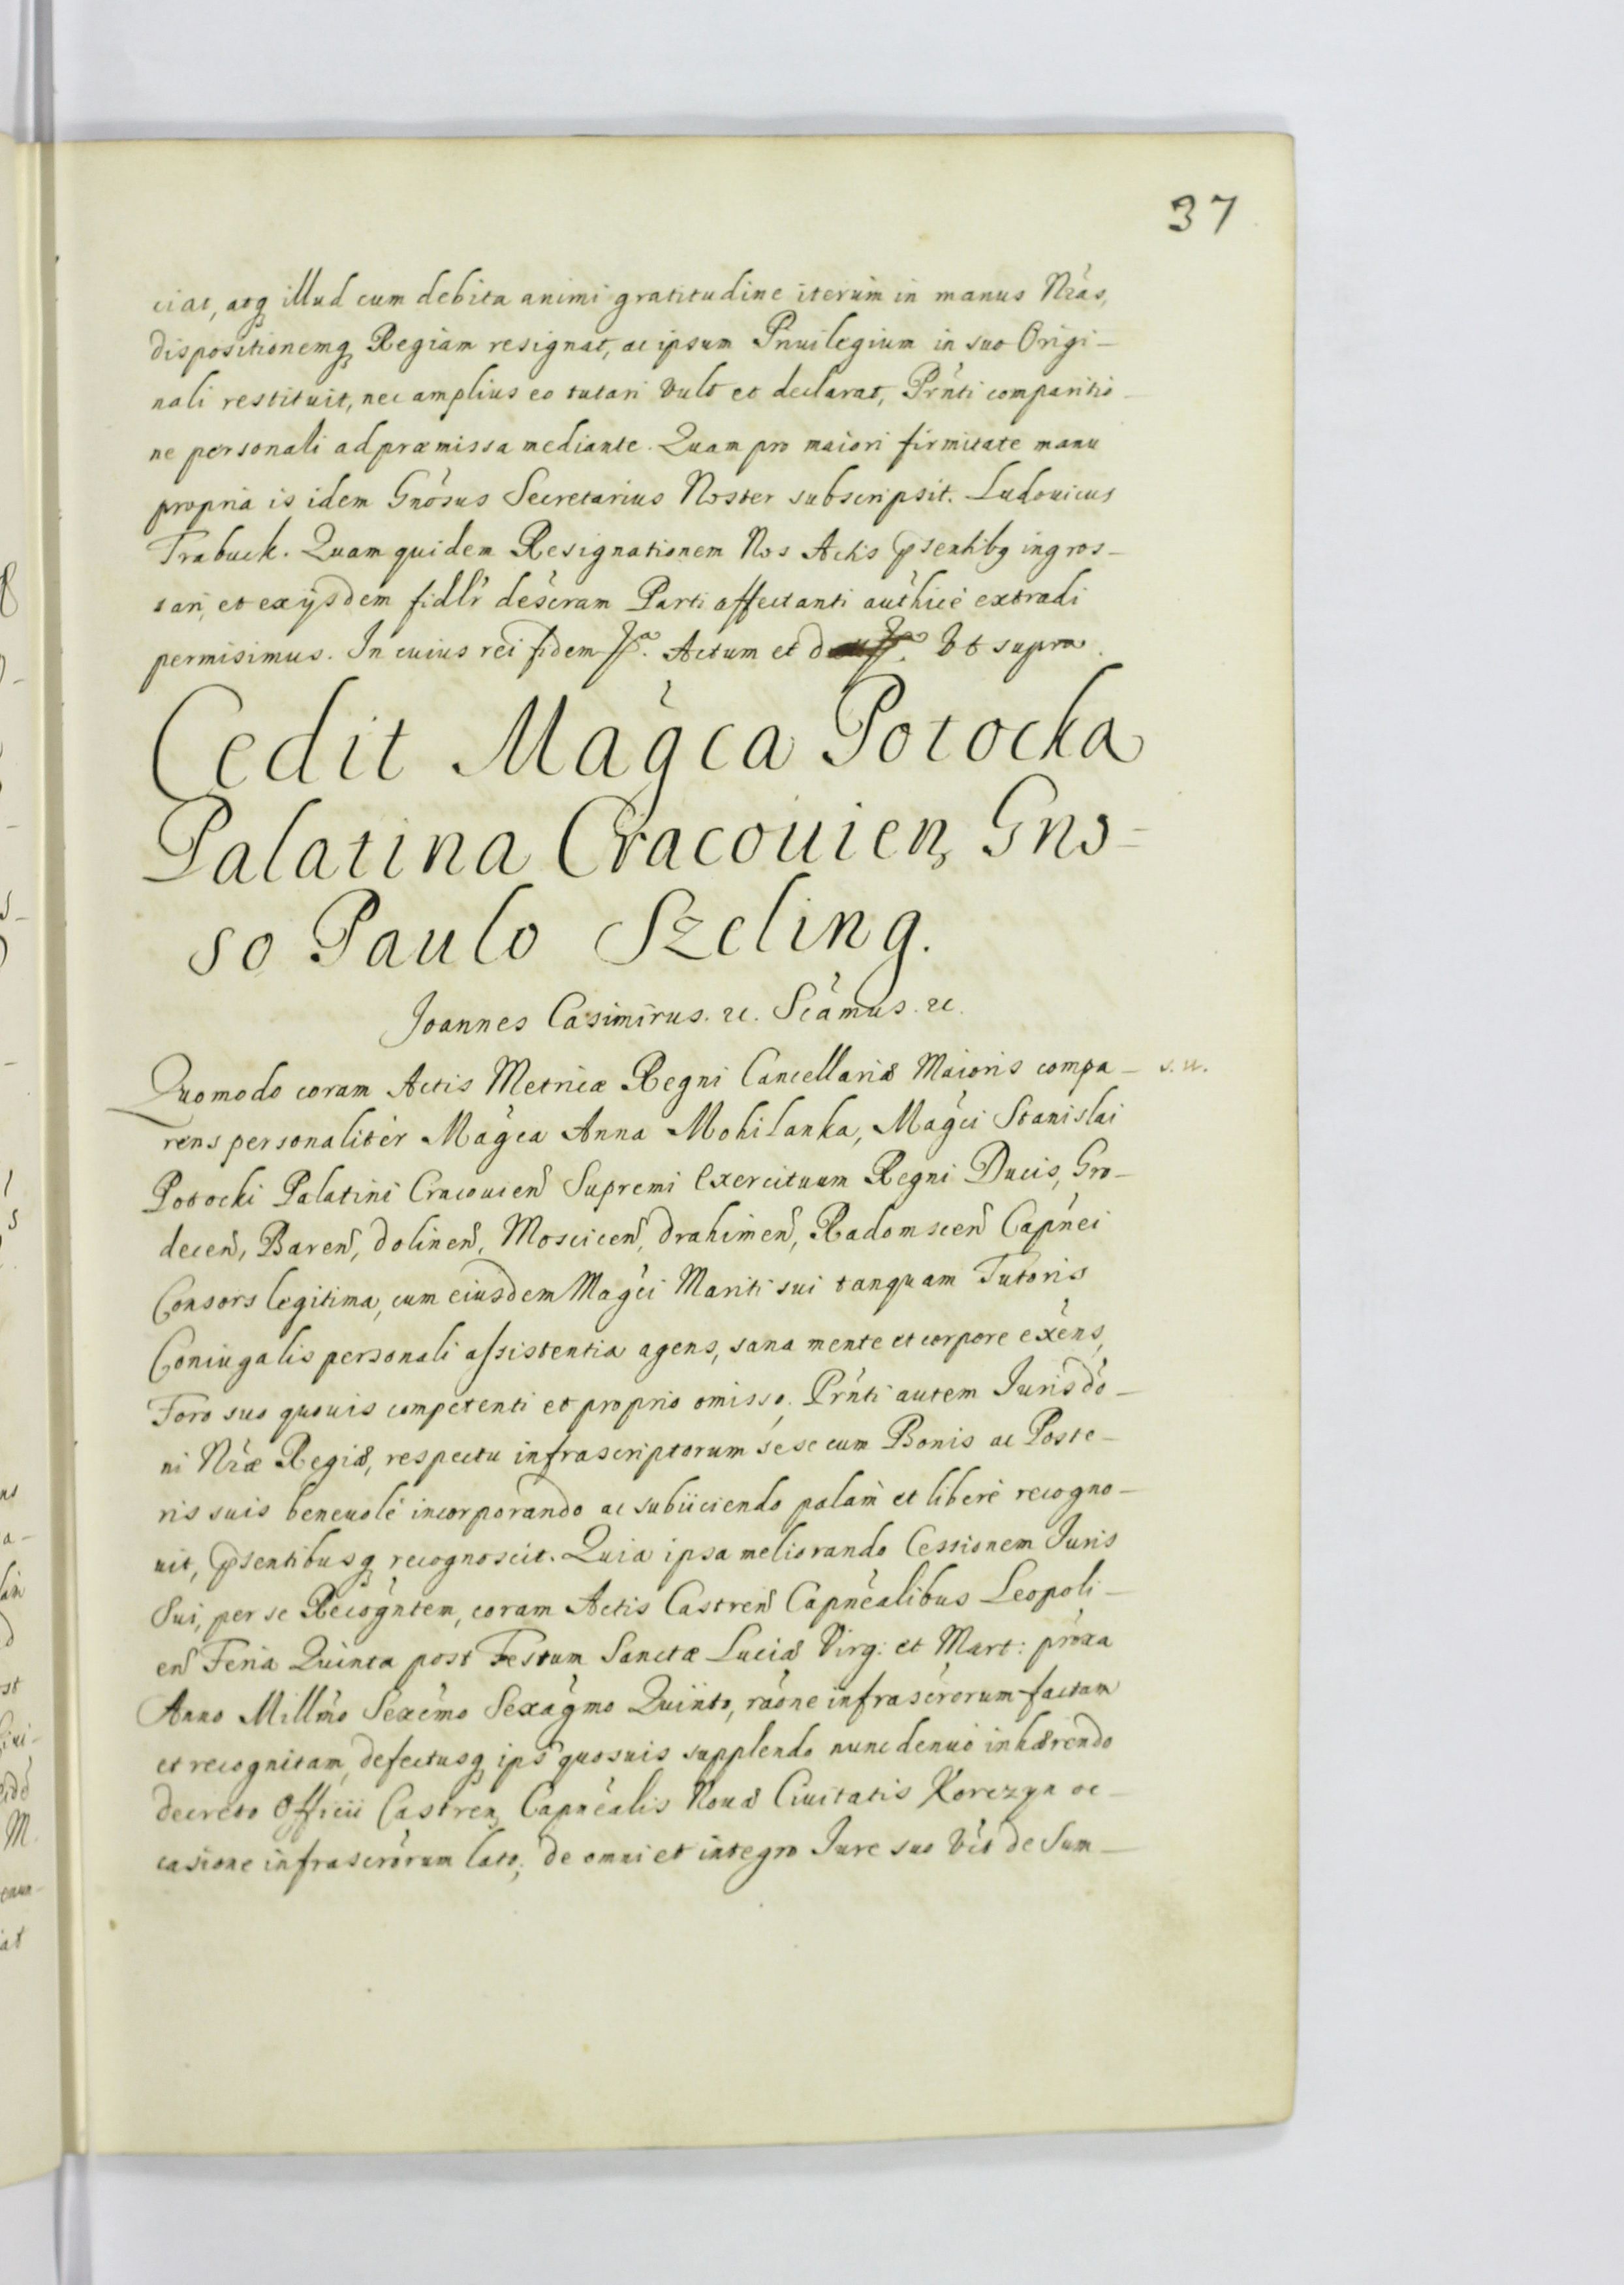 37
ciat, atq illud cum debita animi gratitudine iterum in manus Nras,
dispositionemq Regiam resignat, ac ipsum Priuilegium in suo Origi-
nali restituit, nec amplius eo tutari vult et declarat, Prnti comparitio-
ne personali ad præmissa mediante. Quam pro maiori firmitate manu
propria is idem Gnosus Secretarius Noster subscripsit. Ludouicus
Trabuck. Quam quidem Resignationem Nos Actis psentibq ingros-
sari, et ex ijsdem fidlr descram Parti affectanti authicè extradi
permisimus. In cuius rei fidem. Actum et Vt supra.
Cedit Magca Potocka
Palatina Cracouien, Gno-
so Paulo Szeling.
Joannes Casimirus. &c. Scamus. &c.
Quomodo coram Actis Metricæ Regni Cancellariæ Maioris compa- s. u.
rens personalitèr Magca Anna Mohilanka, Magci Stanislai
Potocki Palatini Cracouien Supremi Exercituum Regni Ducis, Gro-
decen, Baren, dolinen, Moscicen, drahimen, Radomscen Capnei
Consors legitima, cum eiusdem Magci Mariti sui tanquam Tutoris
Coniugalis personali assistentia agens, sana mente et corpore exèns,
Foro suo quouis competenti et proprio omisso. Prnti autem Juris do-
ni Nræ Regiæ, respectu infrascriptorum sese cum Bonis ac Poste-
ris suis beneuolè incorporando ac subiiciendo palàm et liberè recogno-
uit, psentibusq recognoscit. Quia ipsa meliorando Cessionem Juris
Sui, per se Recogntem, coram Actis Castren Capnealibus Leopoli-
en Feria Quinta post Festum Sanctæ Luciæ Virg: et Mart: proxa
Anno Millmo Sexcmo Sexagmo Quinto, raone infrascrorum factam
et recognitam, defectusq ips quosuis supplendo nunc denuò inhærendo
decreto Officii Castren, Capnealis Nouæ Ciuitatis Korczyn oc-
casione infrascrorum lato; de omni et integro Jure suo Vèt de Sum-